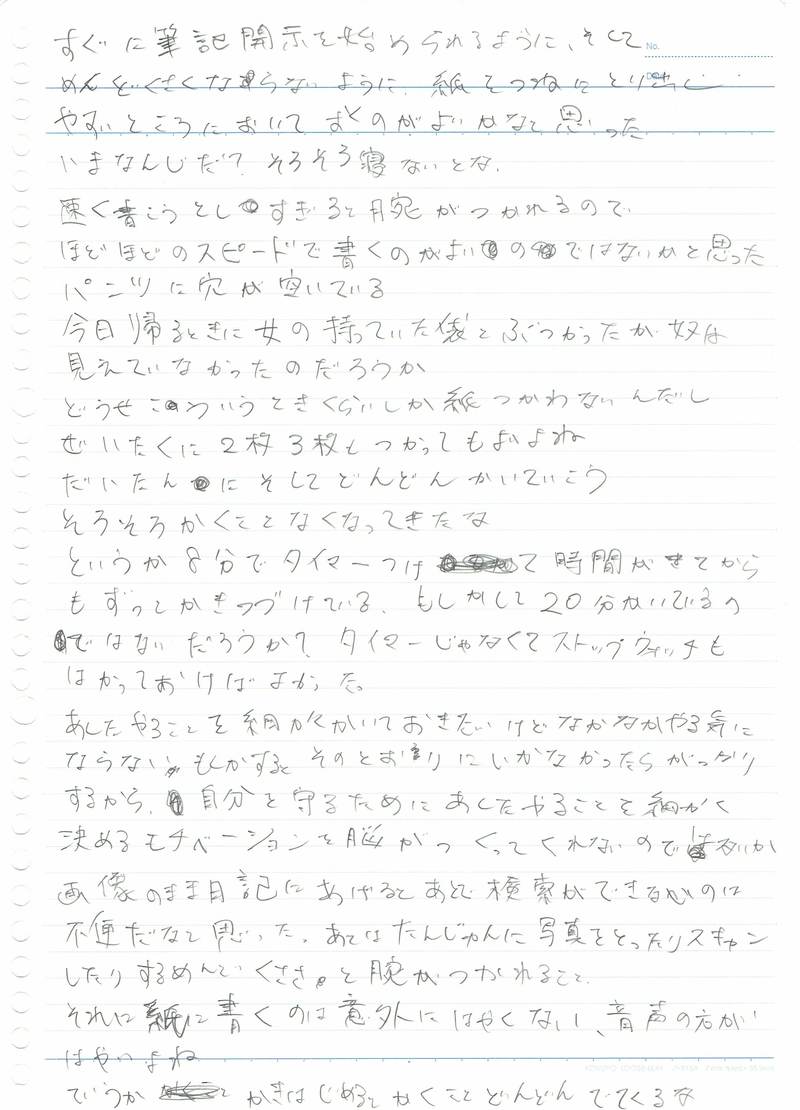 すぐに筆記開示を始められるように、そして
No.
めんどくさくならないように、紙をつねにとり出し
やすいところにおいておくのがよいかなと思った
いまなんじだ?そろそろ寝ないとな、
速く書こうとしすぎると腕がつかれるので
ほどほどのスピードで書くのがよいのではないかと思った
パンツに穴が空いている
今日帰るときに女の持っていた袋とぶつかったが奴は
見えていなかったのだろうか
どうせこういうときくらいしか紙つかわないんだし
ぜいたくに2枚3枚もつかってもよいよね
だいたんにそしてどんどんかいていこう
そろそろかくことなくなってきたな
というか8分でタイマーつけて時間がきてから
もずっとかきつづけている、もしかして20分かいているの
ではないだろうか?タイマーじゃなくてストップウォッチも
はかっておけばよかった。
あしたやることを細かくかいておきたいけどなかなかやる気に
ならない、もしかすると そのとおりにいかなかったらがっかり
するから、自分を守るためにあしたやることを細かく
決めるモチベーションを脳がつくってくれないのではないか
画像のまま日記にあげるとあとで検索ができないのは
不便だなと思った。あとはたんじゅんに写真をとったりスキャン
したりするめんどくささ。と腕がつかれること、
それに紙に書くのは意外にはやくない、音声の方が
はやいよね
ていうか かきはじめるとかくことどんどんでてくるな